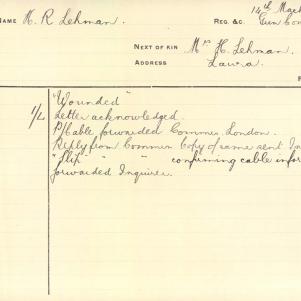 NAME H. R Lehman. REG. &C. 14th Mach
Gun Con
NEXT OF KIN Mrs H. Lehman
ADDRESS Laura
"Wounded"
1/L Letter acknowledged.
P/Cable forwarded Commr. London.
Reply from Commr Copy of same sent In
"Slip" " " confirming cable infor
forwarded Inquirer.